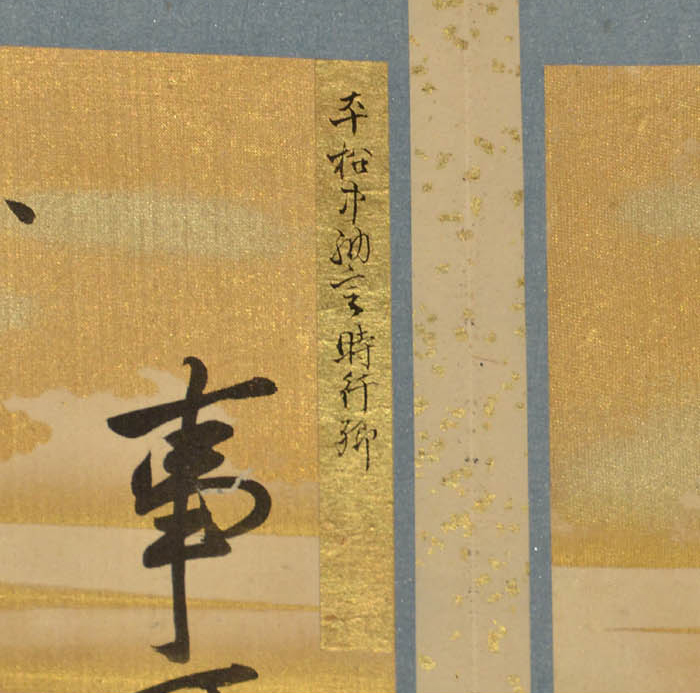 平松中納言時行卿
事